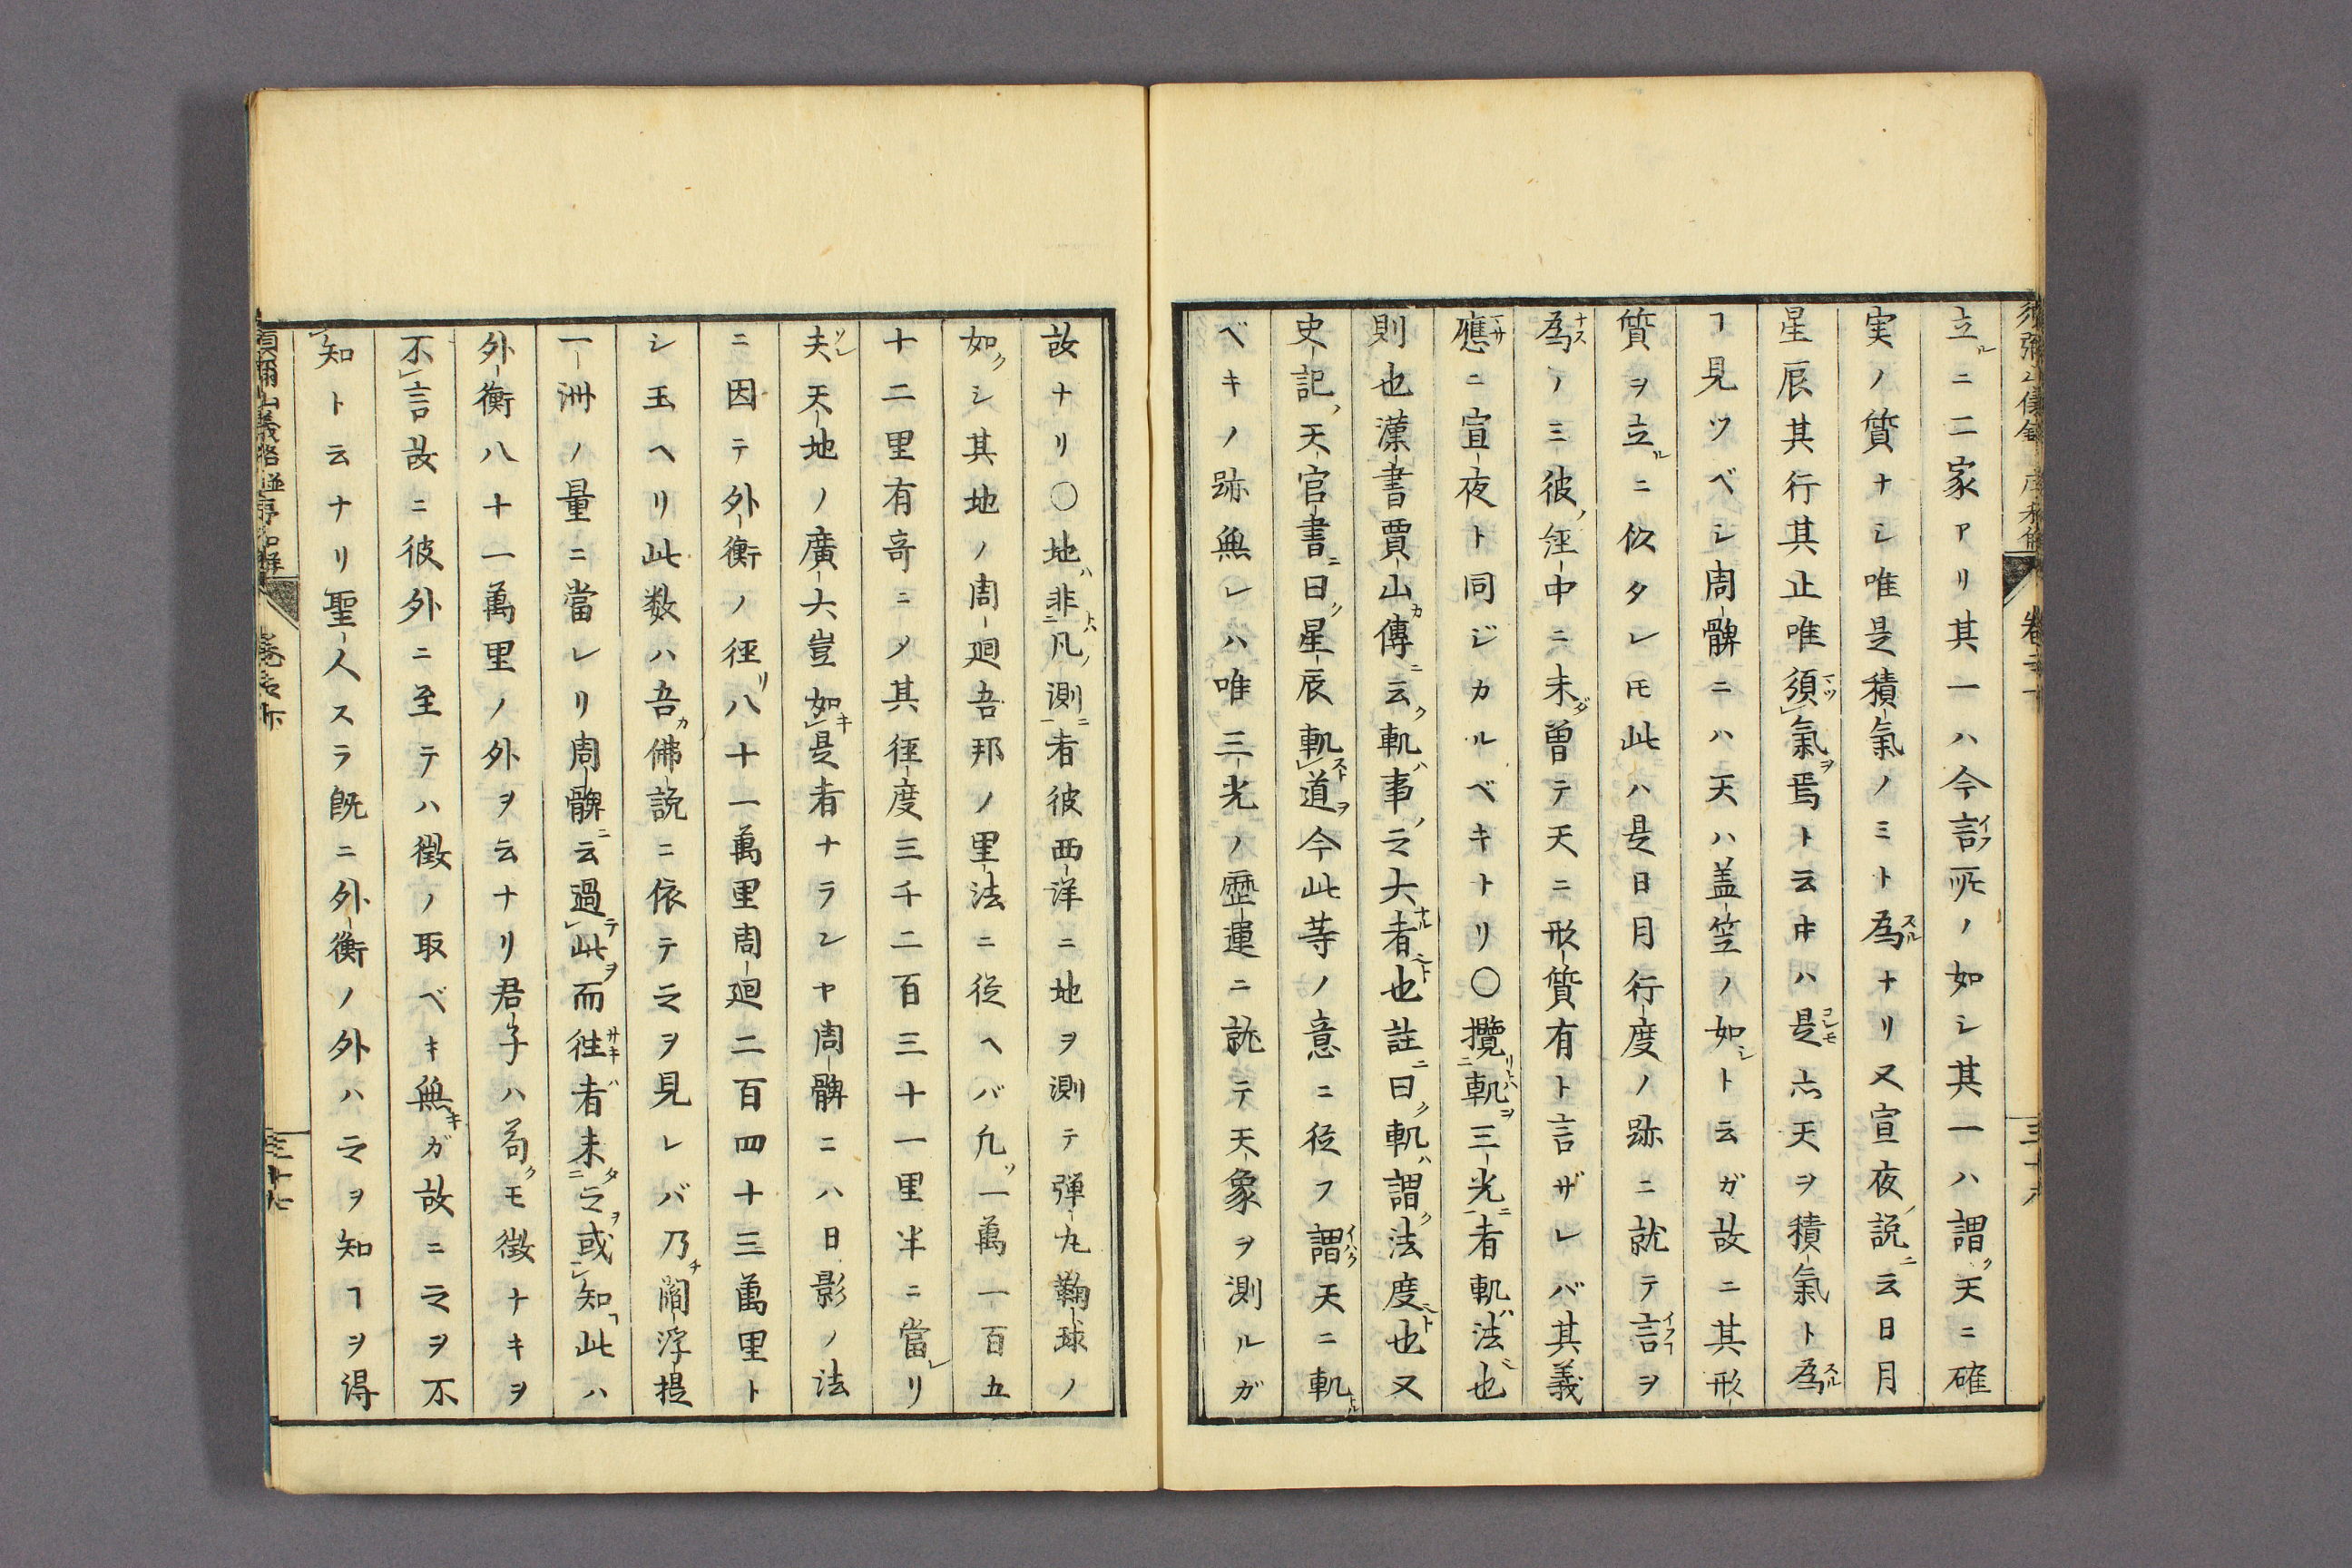 立ルニ二家アリ其一ハ今言イフ所ノ如シ其一ハ謂ク天ニ確
実ノ質ナシ唯是積氣ノミト為スルナリ又宣夜ノ説ニ云日月
星辰其行其止唯須マツ氣ヲ焉ト云ヰハ是コレモ亦天ヲ積氣ト為スル
ヿ見ツベシ周髀ニハ天ハ盖笠ノ如シト云ガ故ニ其形
質ヲ立ルニ似タレ𪜈此ハ是日月行度ノ跡ニ就テ言イフヿヲ
為ナスノミ彼ノ経中ニ未ダ曽テ天ニ形質有ト言ザレバ其義
應マサニ宣夜ト同ジカルベキトリ〇攬リトハ二軌ヲ三光ニ一者軌ハ法也
則也漢書賈山カ傳ニ云ク軌ハ事ノ之大ナル者也註ニ曰ク軌ハ謂ク法度也又
史記ノ天官書ニ曰ク星辰軌ストレ道ヲ今此等ノ意ニ従フ謂イハク天ニ軌トル
ベキノ跡無レハ唯三光ノ歴運ニ就テ天象ヲ測ルガ
故ナリ〇地ハ非トハ二凡ノ測ニ一者彼西洋ニ地ヲ測テ弾丸鞠球ノ
如クシ其地ノ周廻吾邦ノ里法ニ従ヘバ凡ソ一萬一百五
十二里有竒ニノ其徑度三千二百三十一里半ニ當レリ
夫ソレ天地ノ廣大豈如キレ是者ナランヤ周髀ニハ日影ノ法
ニ因テ外衡ノ徑リ八十一萬里周廻二百四十三萬里ト
シ玉ヘリ此数ハ吾カ佛説ニ依テ之ヲ見レバ乃チ閻浮提
一洲ノ量ニ當レリ周髀ニ云過テレ此ヲ而往サキ者バ未タ二之ヲ或一レ知ヿ此ハ
外衡八十一萬里ノ外ヲ云ナリ君子ハ苟クモ徴ナキヲ
不レ言故ニ彼外ニ至テハ徴ノ取ベキ無キガ故ニ之ヲ不
レ知ト云ナリ聖人スラ既ニ外衡ノ外ハ之ヲ知ヿヲ得
須彌山儀銘并序和解
卷之下
三十七